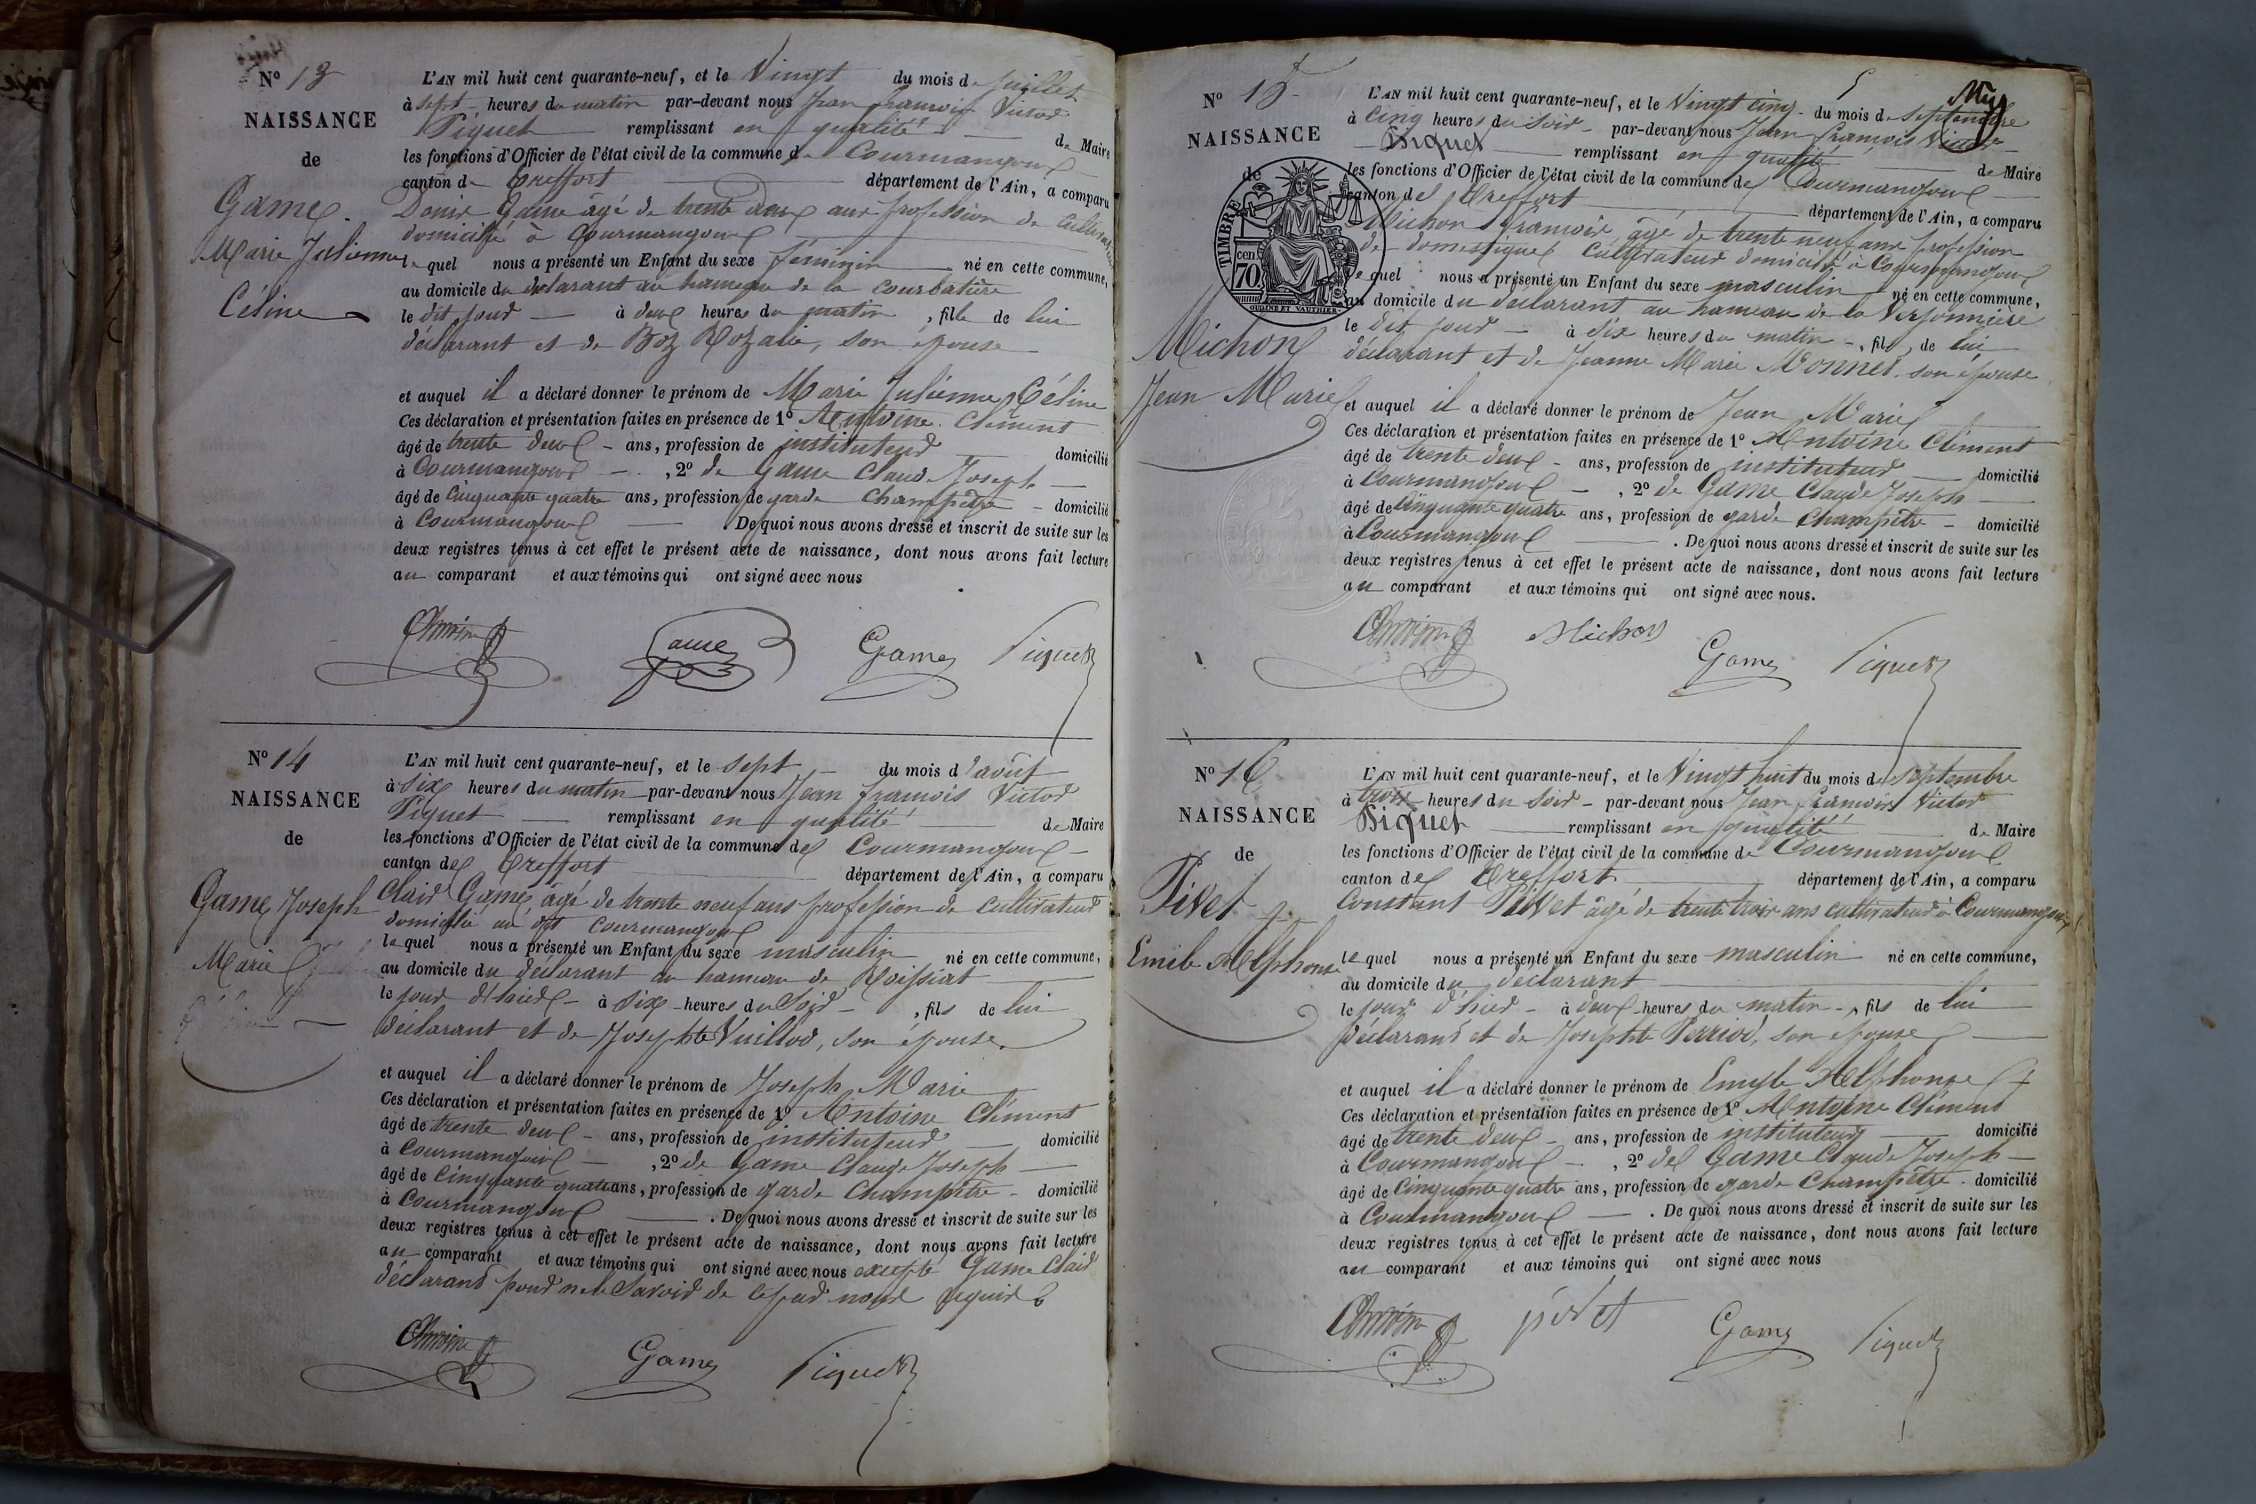 N° 13
NAISSANCE
de
Game
Marie Julienne
Céline
L'AN mil huit cent quarante-neuf, et le Vingt du mois de juillet
à sept heures du matin par-devant nous Jean françois Victor
Piquet remplissant en qualité de Maire
les fonctions d'Officier de l'état civil de la commune de Courmangoux
canton de Treffort département de l'Ain, a comparu
Game âgé de trente deux ans profession de cultivateur
domicilié à Courmangoux
lequel nous a présenté un Enfant du sexe féminin né en cette commune,
au domicile du déclarant au hameau de la Courbatière
le dit jour à deux heures du matin, fille de lui
déclarant et de Boz Rozalie, son épouse
et auquel il a déclaré donner le prénom de Marie Julienne Céline
Ces déclaration et présentation faites en présence de 1° Antoine Clément
âgé de trente deux ans, profession de instituteur domicilié
à Courmangoux, 2° de Game Claude Joseph
âgé de Cinquante quatre ans, profession de garde Champêtre domicilié
à Courmangoux. De quoi nous avons dressé et inscrit de suite sur les
deux registres tenus à cet effet le présent acte de naissance, dont nous avons fait lecture
au comparant et aux témoins qui ont signé avec nous
Antoine Game Game Piquet
N° 14
NAISSANCE
de
Game Joseph
Marie
L'AN mil huit cent quarante-neuf, et le sept du mois d'août
à six heures du matin par-devant nous Jean françois Victor
Piquet remplissant en qualité de Maire
les fonctions d'Officier de l'état civil de la commune de Courmangoux
canton de Treffort département de l'Ain, a comparu
Clair Game, âgé de trente neuf ans profession de cultivateur
domicilié au dit Courmangoux
lequel nous a présenté un Enfant du sexe masculin né en cette commune,
au domicile du déclarant au hameau de Roissiat
le jour d'hier à six heures du Soir, fils de lui
déclarant et de Josephte Vuillod, son épouse
et auquel il a déclaré donner le prénom de Joseph Marie
Ces déclaration et présentation faites en présence de 1° Antoine Clément
âgé de trente deux ans, profession de instituteur domicilié
à Courmangoux, 2° de Game Claude Joseph
âgé de Cinquante quatre ans, profession de garde Champêtre domicilié
à Courmangoux. De quoi nous avons dressé et inscrit de suite sur les
deux registres tenus à cet effet le présent acte de naissance, dont nous avons fait lecture
au comparant et aux témoins qui ont signé avec nous excepté Game Clair
déclarant pour ne le Savoir de ce par nous requis
Antoine Game Piquet
N° 15
NAISSANCE
de
TIMBRE
cen
70
OUDINÉ ET VAUTHIER
Michon
Jean Marie
L'AN mil huit cent quarante-neuf, et le Vingt cinq du mois de Septembre
à Cinq heures du Soir par-devant nous Jean françois Victor
Piquet remplissant en qualité de Maire
les fonctions d'Officier de l'état civil de la commune de Courmangoux
canton de Treffort département de l'Ain, a comparu
Michon françois, âgé de trente neuf ans profession
de domestique cultivateur domicilié à Courmangoux
lequel nous a présenté un Enfant du sexe masculin né en cette commune,
au domicile du déclarant au hameau de la Verjonnière
le dit jour à six heures du matin, fils de lui
déclarant et de Jeanne Marie Monnet son épouse
et auquel il a déclaré donner le prénom de Jean Marie
Ces déclaration et présentation faites en présence de 1° Antoine Clément
âgé de trente deux ans, profession de instituteur domicilié
à Courmangoux, 2° de Game Claude Joseph
âgé de Cinquante quatre ans, profession de garde Champêtre domicilié
à Courmangoux. De quoi nous avons dressé et inscrit de suite sur les
deux registres tenus à cet effet le présent acte de naissance, dont nous avons fait lecture
au comparant et aux témoins qui ont signé avec nous.
Antoine Michon Game Piquet
N° 16
NAISSANCE
de
Pivet
Emile Alphonse
L'AN mil huit cent quarante-neuf, et le Vingt huit du mois de Septembre
à trois heures du Soir par-devant nous Jean françois Victor
Piquet remplissant en qualité de Maire
les fonctions d'Officier de l'état civil de la commune de Courmangoux
canton de Treffort département de l'Ain, a comparu
Constant Pivet âgé de trente trois ans cultivateur à Courmangoux
lequel nous a présenté un Enfant du sexe masculin né en cette commune,
au domicile du déclarant
le jour d'hier à deux heures du matin, fils de lui
déclarant et de Josephte Perriod, son épouse
et auquel il a déclaré donner le prénom de Emyle Alphonse
Ces déclaration et présentation faites en présence de 1° Antoine Clément
âgé de trente deux ans, profession de instituteur domicilié
à Courmangoux, 2° de Game Claude Joseph
âgé de Cinquante quatre ans, profession de garde Champêtre domicilié
à Courmangoux. De quoi nous avons dressé et inscrit de suite sur les
deux registres tenus à cet effet le présent acte de naissance, dont nous avons fait lecture
au comparant et aux témoins qui ont signé avec nous
Antoine pivet Game Piquet